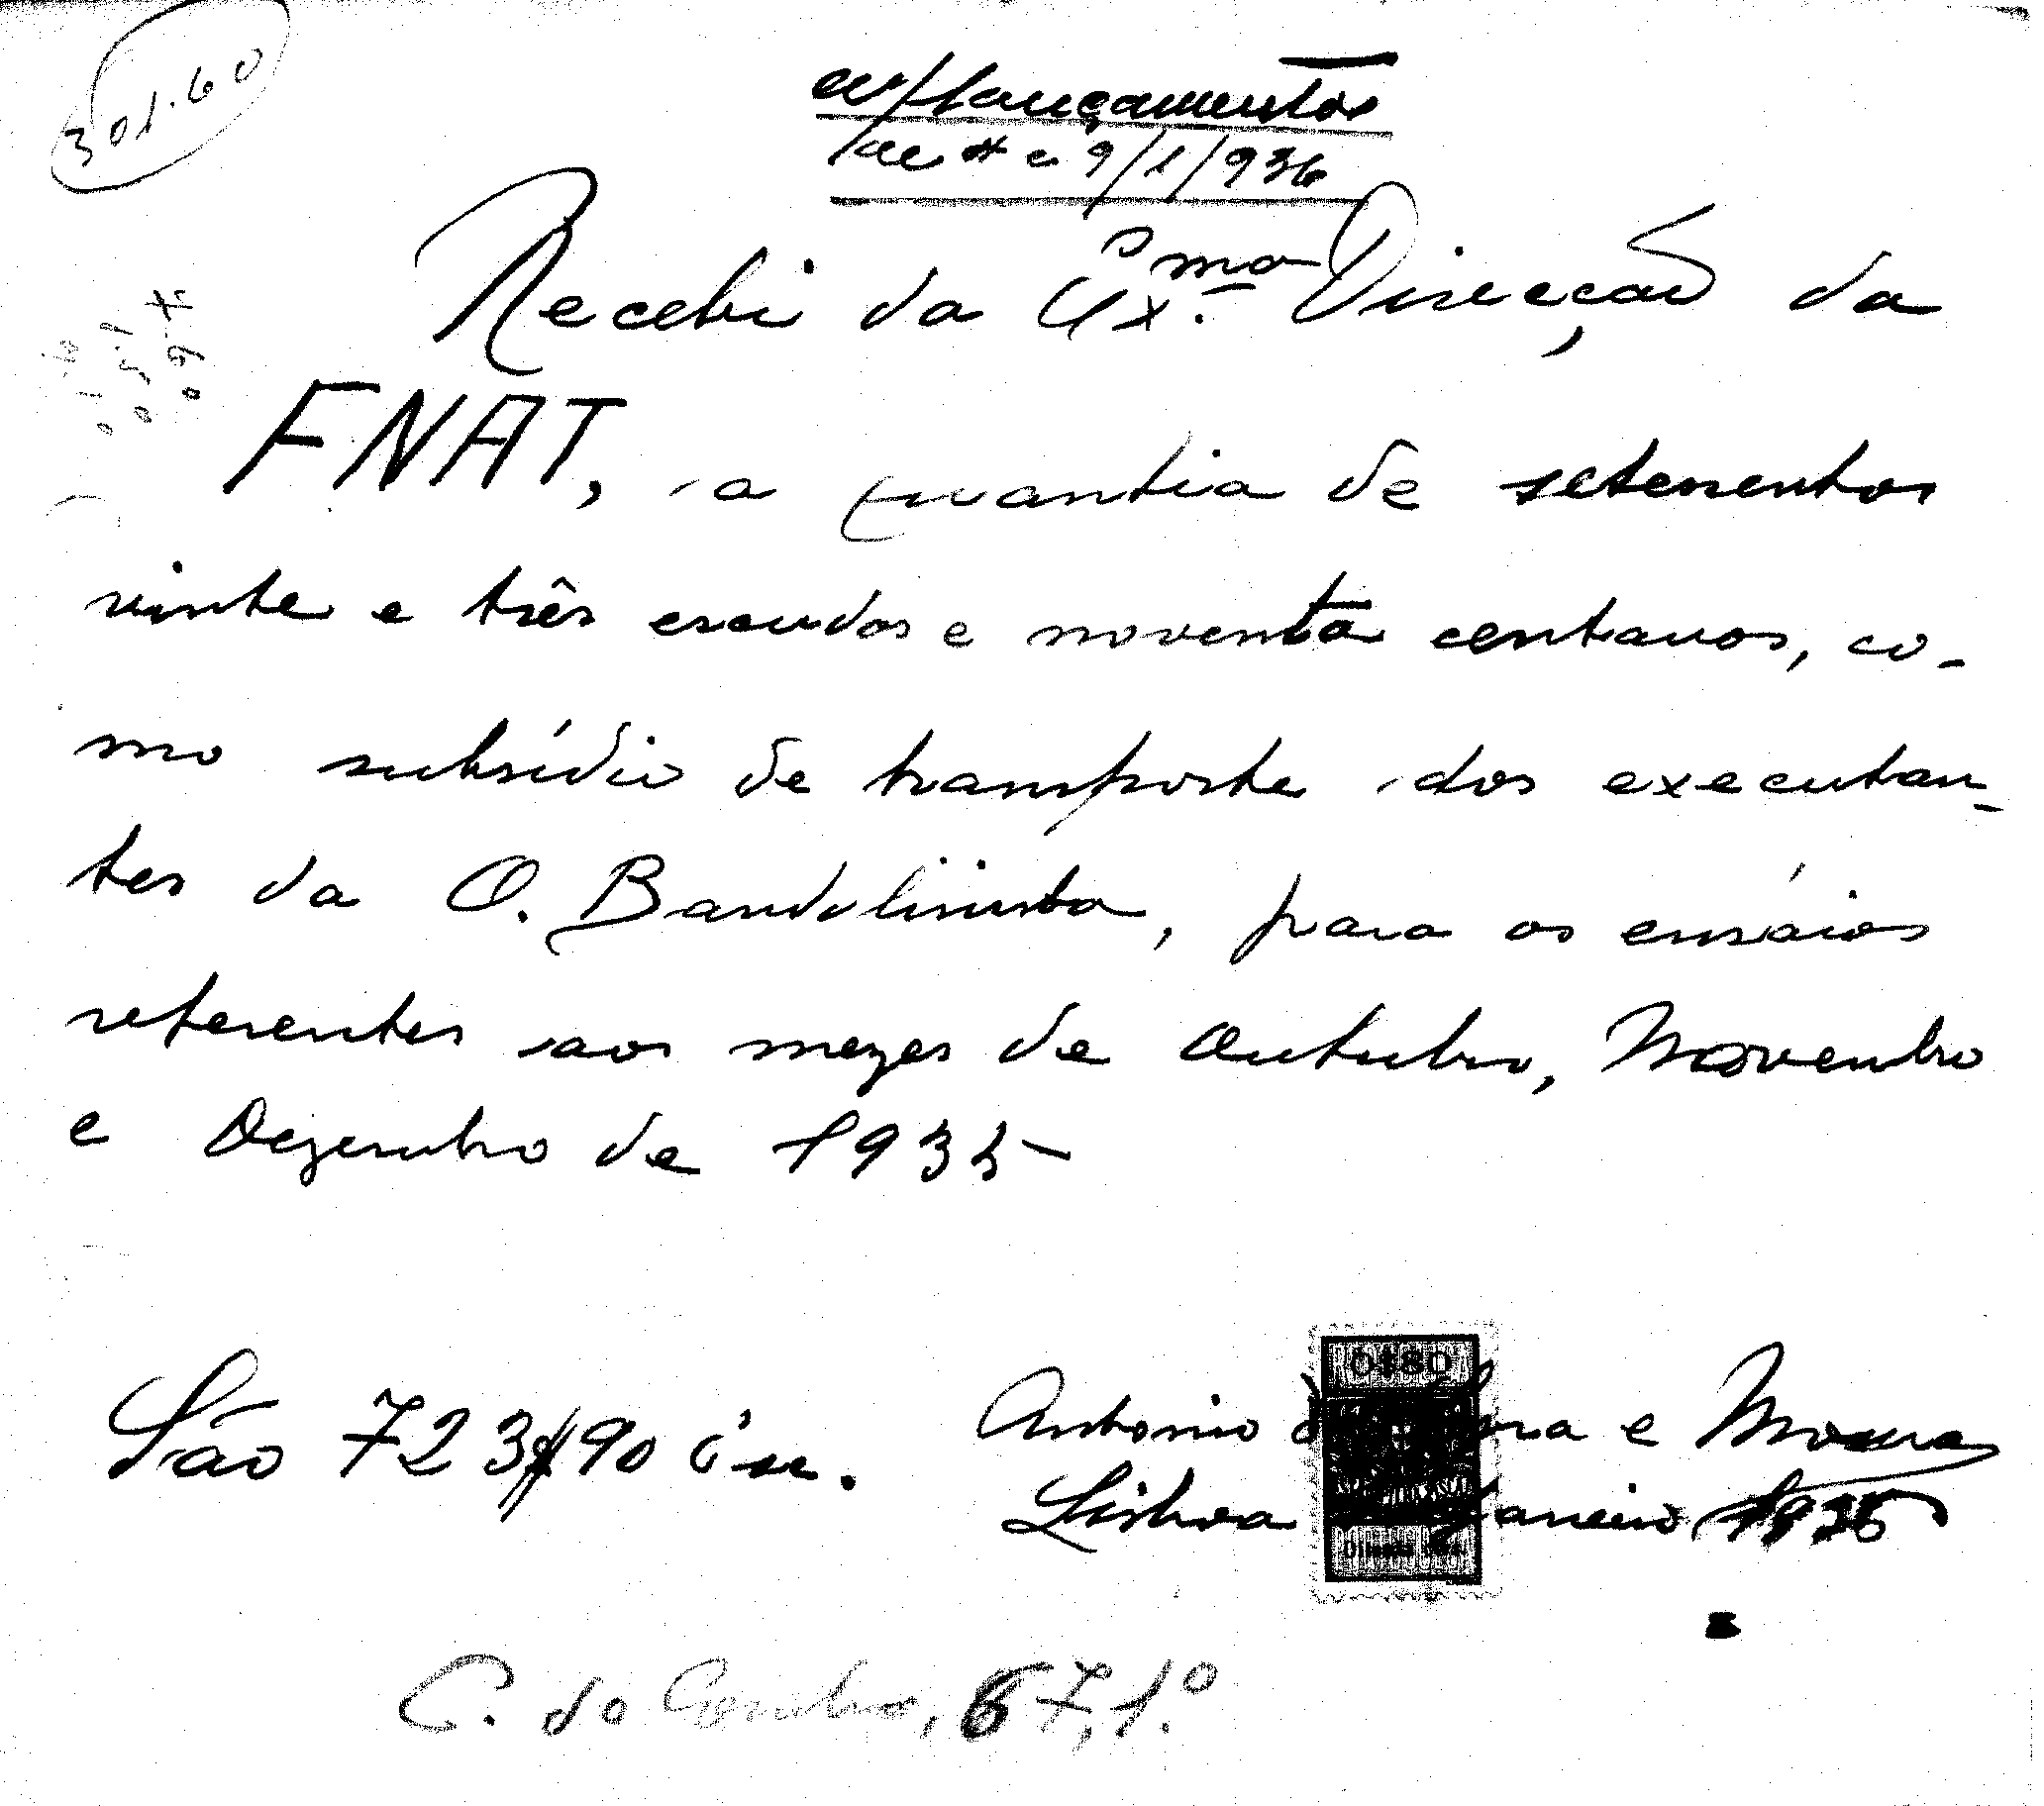 301.60
c/lançamentos
9/1/936
Recebi da Exma Direcção da
FNAT, a quantia de setecentos
vinte e três escudos e noventa centavos, co-
mo subsídio de transporte dos executan-
tes da O. Bandolinista, para os ensáios
referentes aos mezes de Outubro, Novembro
e Dezembro de 1935
São 723$90
Antonio e Moura
Lisboa Janeiro 1936
C. do Combro, 67, 1.º